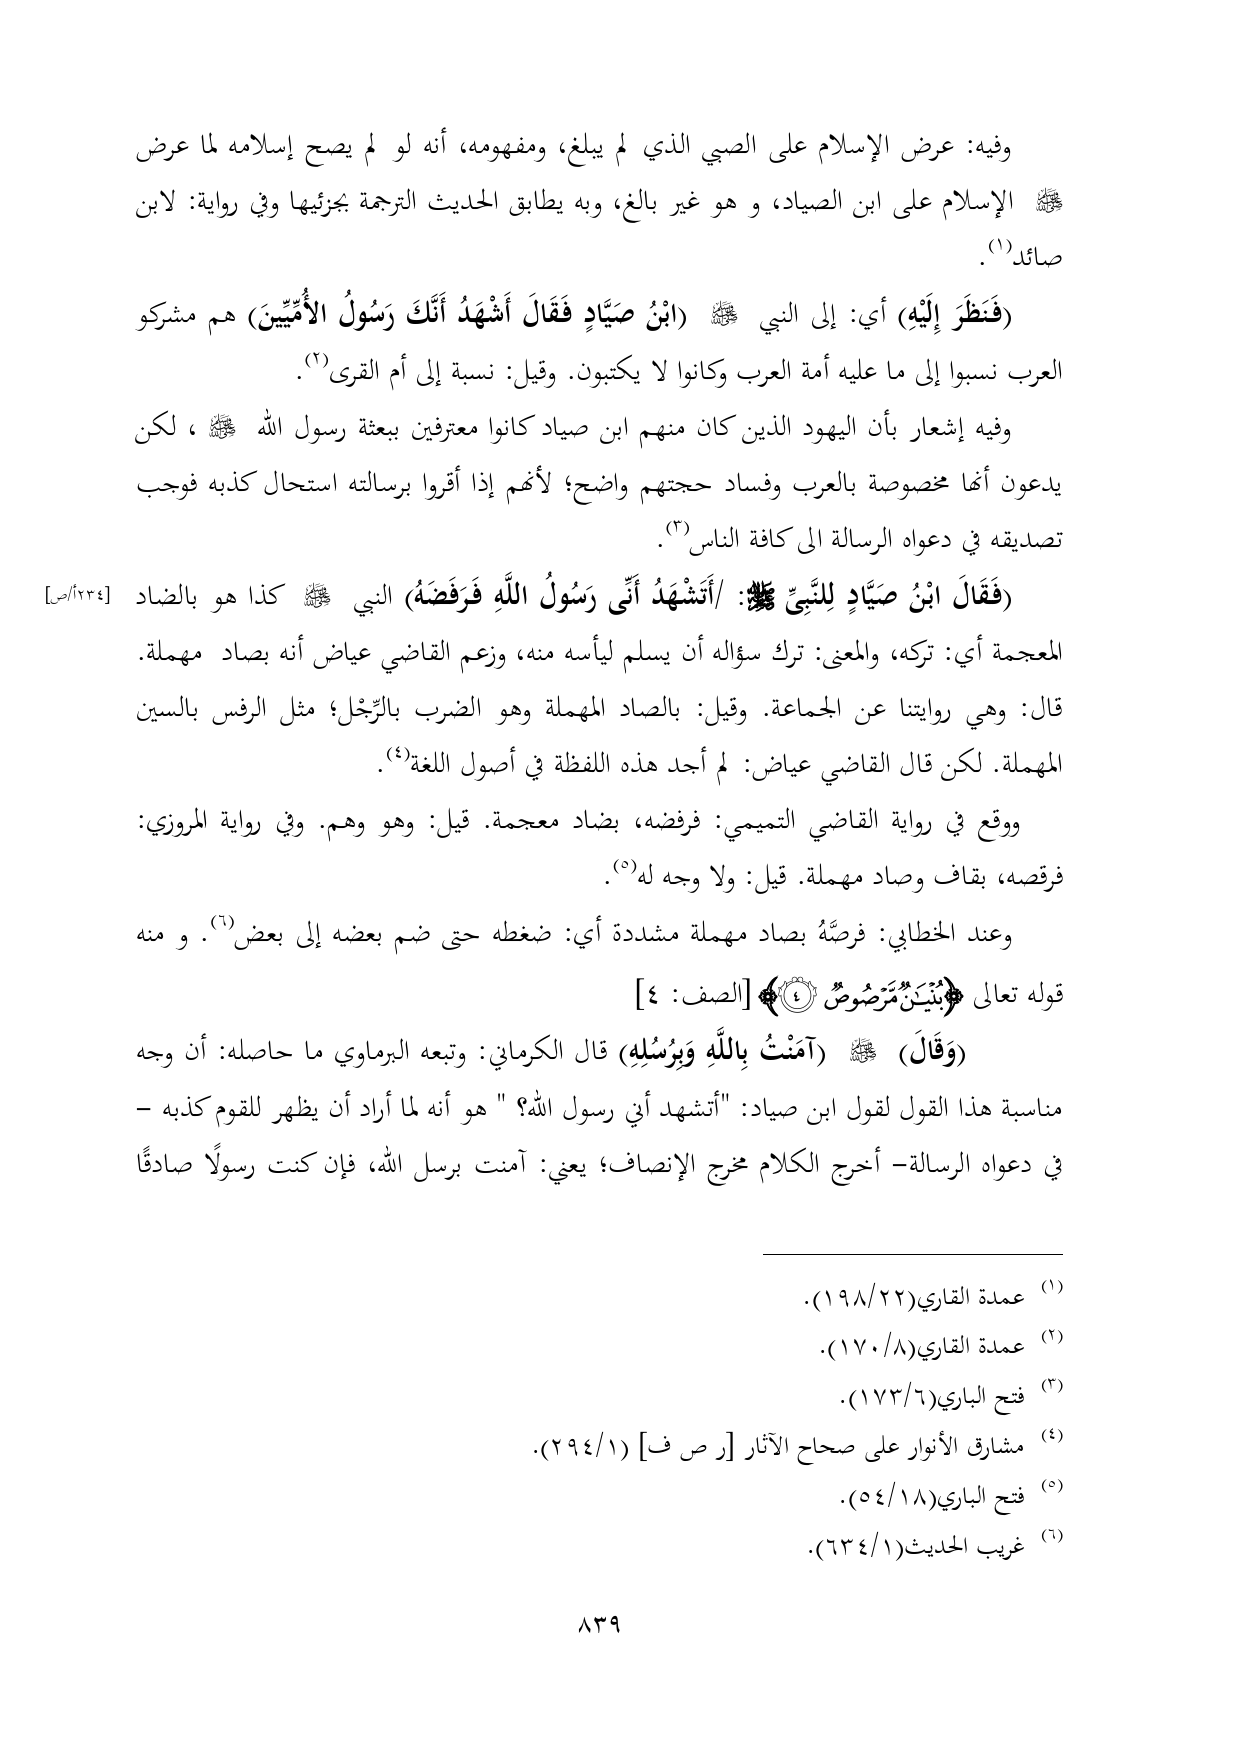 وفيه: عرض الإسلام على الصبي الذي لم يبلغ، ومفهومه، أنه لو لم يصح إسلامه لما عرض
ﷺ الإسلام على ابن الصياد، و هو غير بالغ، وبه يطابق الحديث الترجمة بجزئيها وفي رواية: لابن
صائد(١).
(فَنَظَرَ إِلَيْهِ) أي: إلى النبي ﷺ (ابْنُ صَيَّادٍ فَقَالَ أَشْهَدُ أَنَّكَ رَسُولُ الأُمِّيِّينَ) هم مشركو
العرب نسبوا إلى ما عليه أمة العرب وكانوا لا يكتبون. وقيل: نسبة إلى أم القرى(٢).
وفيه إشعار بأن اليهود الذين كان منهم ابن صياد كانوا معترفين ببعثة رسول الله ﷺ ، لكن
يدعون أنها مخصوصة بالعرب وفساد حجتهم واضح؛ لأنهم إذا أقروا برسالته استحال كذبه فوجب
تصديقه في دعواه الرسالة الى كافة الناس(٣).
(فَقَالَ ابْنُ صَيَّادٍ لِلنَّبِىِّ ﷺ: /أَتَشْهَدُ أَنِّى رَسُولُ اللَّهِ فَرَفَضَهُ) النبي ﷺ كذا هو بالضاد [٢٣٤أ/ص]
المعجمة أي: تركه، والمعنى: ترك سؤاله أن يسلم ليأسه منه، وزعم القاضي عياض أنه بصاد مهملة.
قال: وهي روايتنا عن الجماعة. وقيل: بالصاد المهملة وهو الضرب بالرِّجْل؛ مثل الرفس بالسين
المهملة. لكن قال القاضي عياض: لم أجد هذه اللفظة في أصول اللغة(٤).
ووقع في رواية القاضي التميمي: فرفضه، بضاد معجمة. قيل: وهو وهم. وفي رواية المروزي:
فرقصه، بقاف وصاد مهملة. قيل: ولا وجه له(٥).
وعند الخطابي: فرصَّهُ بصاد مهملة مشددة أي: ضغطه حتى ضم بعضه إلى بعض(٦). و منه
قوله تعالى ﴿بُنْيَـٰنٌ مَّرْصُوصٌ ٤﴾ [الصف: ٤]
(وَقَالَ) ﷺ (آمَنْتُ بِاللَّهِ وَبِرُسُلِهِ) قال الكرماني: وتبعه البرماوي ما حاصله: أن وجه
مناسبة هذا القول لقول ابن صياد: "أتشهد أني رسول الله؟ " هو أنه لما أراد أن يظهر للقوم كذبه –
في دعواه الرسالة– أخرج الكلام مخرج الإنصاف؛ يعني: آمنت برسل الله، فإن كنت رسولًا صادقًا
(١) عمدة القاري(١٩٨/٢٢).
(٢) عمدة القاري(١٧٠/٨).
(٣) فتح الباري(١٧٣/٦).
(٤) مشارق الأنوار على صحاح الآثار [ر ص ف] (٢٩٤/١).
(٥) فتح الباري(٥٤/١٨).
(٦) غريب الحديث(٦٣٤/١).
٨٣٩